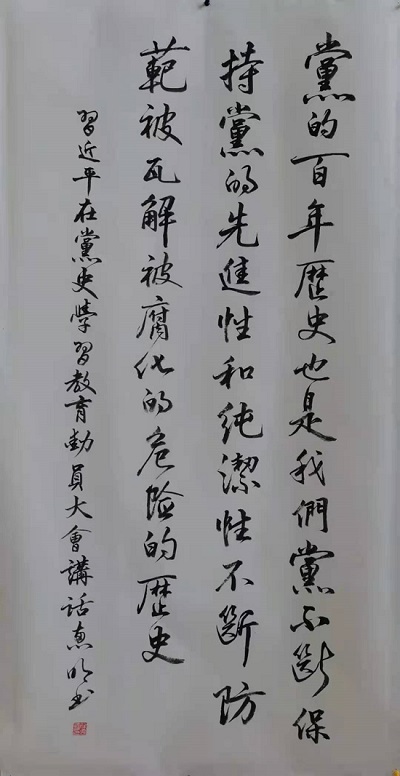 黨的百年歷史也是我們黨不斷保
持黨的先進性和純潔性不斷防
範被瓦解被腐化的危險的歷史
習近平在黨史學習教育動員大會講話惠明书